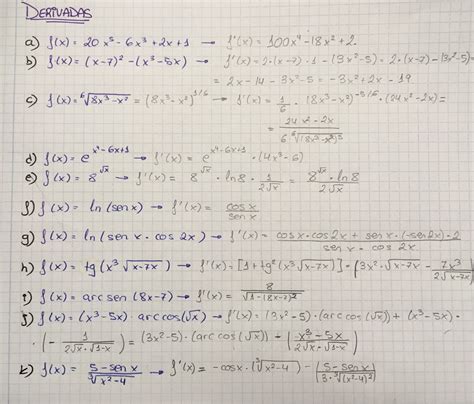 DERIVADAS
a) f(x) = 20x⁵ - 6x³ + 2x + 1 → f'(x) = 100x⁴ - 18x² + 2.
b) f(x) = (x-7)² - (x³-5x) → f'(x) = 2·(x-7)·1 - (3x²-5) = 2·(x-7) - (3x²-5)
= 2x - 14 - 3x² - 5 = -3x² + 2x - 19.
c) f(x) = ⁶√(8x³-x²) = (8x³-x²)^(1/6) → f'(x) = 1/6 · (8x³-x²)^(-5/6) · (24x²-2x) =
= (24x²-2x)/(6 ⁶√(8x³-x²)⁵)
d) f(x) = e^(x⁴-6x+1) → f'(x) = e^(x⁴-6x+1) · (4x³-6)
e) f(x) = 8^(√x) → f'(x) = 8^(√x) · ln 8 · 1/(2√x) = (8^(√x) · ln 8)/(2√x)
f) f(x) = ln (sen x) → f'(x) = cos x/sen x
g) f(x) = ln (sen x · cos 2x) → f'(x) = (cos x · cos 2x + sen x · (-sen 2x) · 2)/(sen x · cos 2x)
h) f(x) = tg (x³ √(x-7x)) → f'(x) = [1 + tg² (x³ √(x-7x))] · (3x² · √(x-7x) - 7x³/(2√(x-7x)))
i) f(x) = arc sen (8x-7) → f'(x) = 8/√(1-(8x-7)²)
j) f(x) = (x³-5x) · arc cos (√x) → f'(x) = (3x²-5) · (arc cos (√x)) + (x³-5x) ·
· (- 1/(2√x · √(1-x))) = (3x²-5) · (arc cos (√x)) + (-x³-5x)/(2√x · √(1-x))
k) f(x) = (5-sen x)/∛(x²-4) → f'(x) = -cos x · (∛(x²-4)) - ((5-sen x)/(3·∛(x²-4)²))